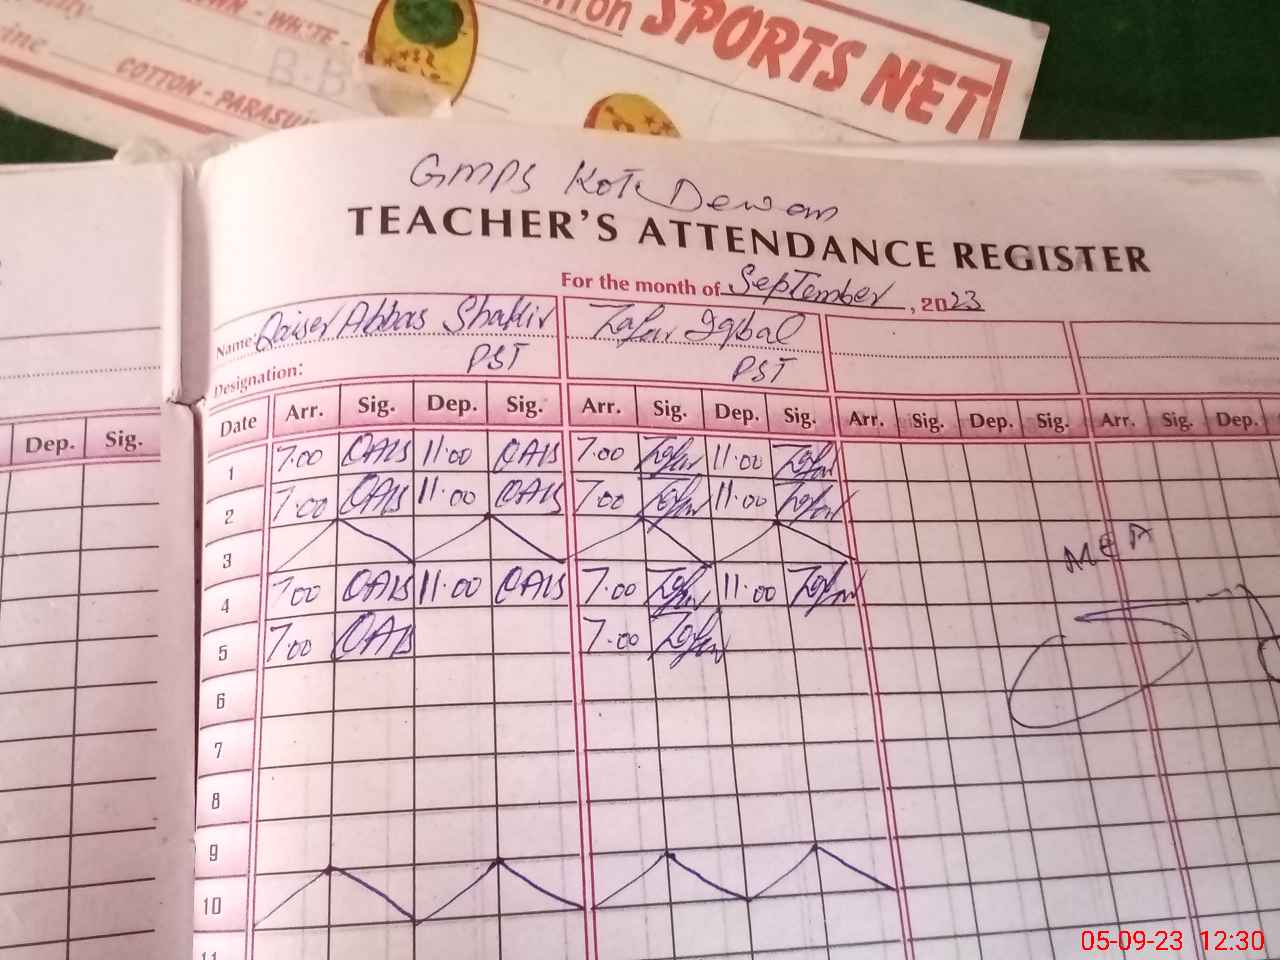 SPORTS NET
WHITE -
COTTON - PARASU
B.B
GMPS Kot Dewan
TEACHER'S ATTENDANCE REGISTER
For the month of September, 2023
Name: Qaiser Abbas Shakir Zafar Iqbal
Designation: PST PST
Date Arr. Sig. Dep. Sig. Arr. Sig. Dep. Sig. Arr. Sig. Dep. Sig. Arr. Sig. Dep.
Dep. Sig.
1 7.00 QAIS 11.00 QAIS 7.00 Zafar 11.00 Zafar
2 7.00 QAIS 11.00 QAIS 7.00 Zafar 11.00 Zafar
3
MEA
4 7.00 QAIS 11.00 QAIS 7.00 Zafar 11.00 Zafar
5 7.00 QAIS 7.00 Zafar
6
7
8
9
10
11
05-09-23 12:30